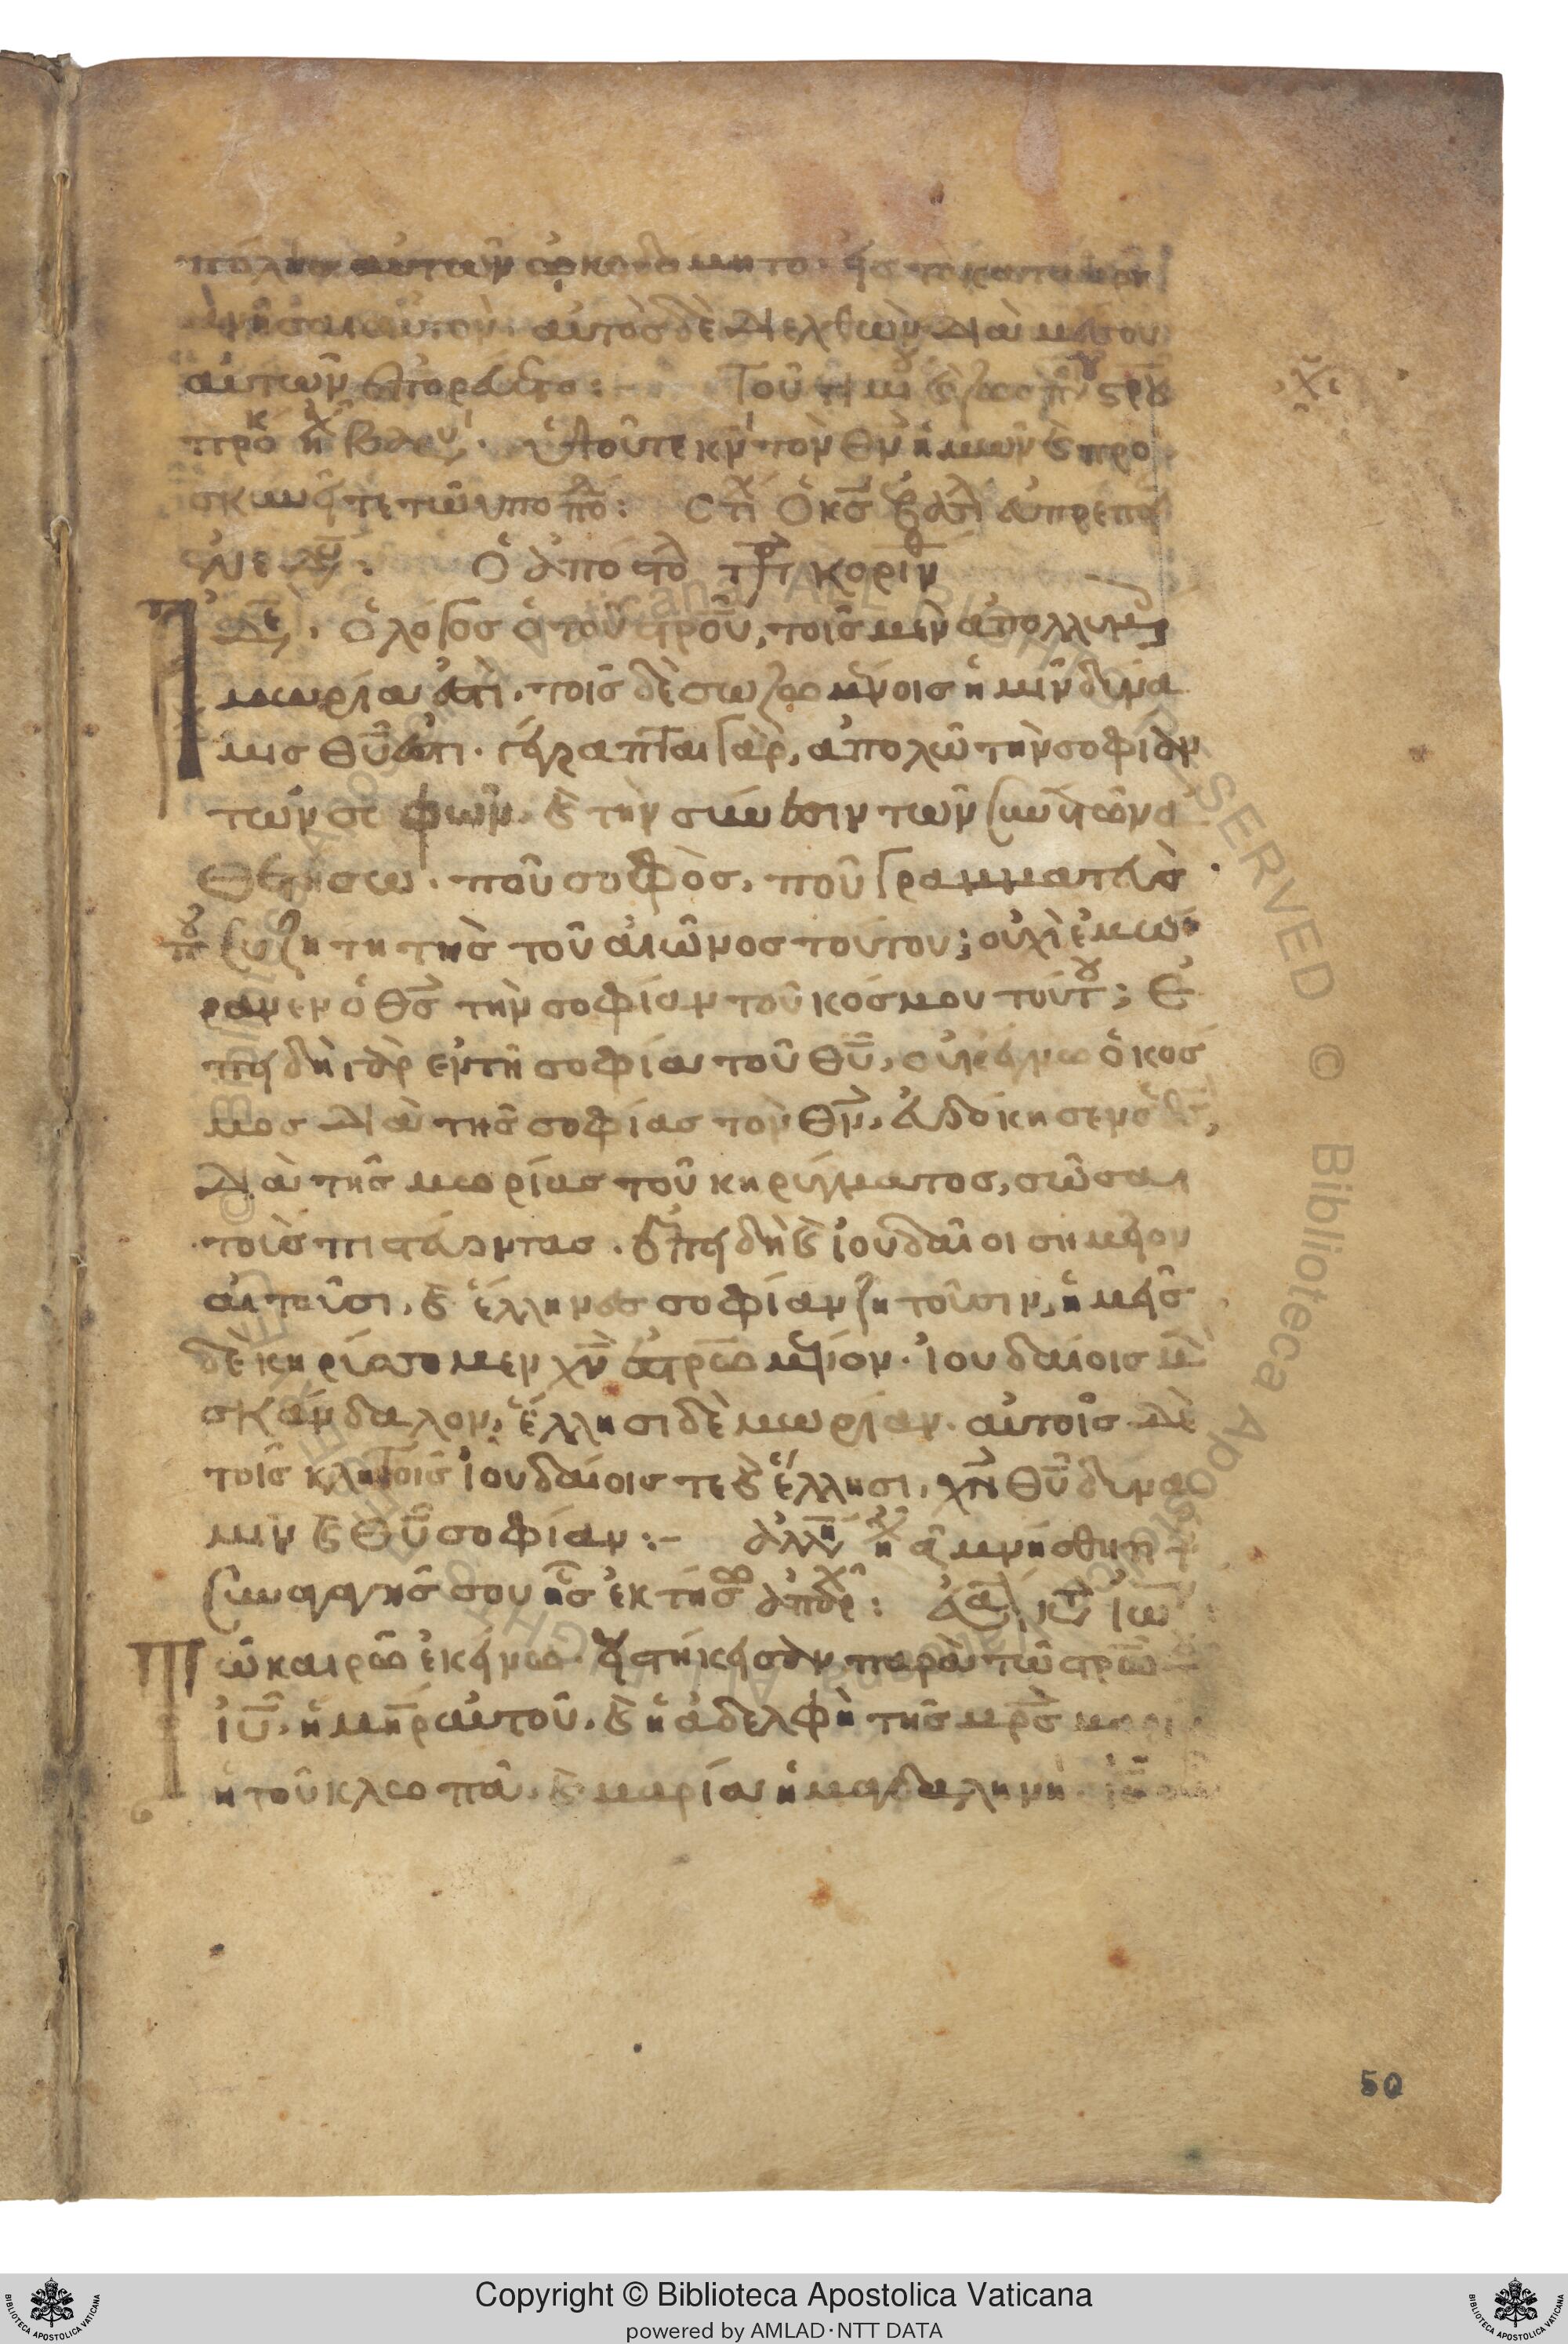 πόλις αὐτῶν ὠκοδόμητο· εἰς τὸ κατακρη
μνῆσαι αὐτὸν· αὐτὸς δὲ διελθὼν διὰ μέσου
αὐτῶν ἐπορεύετο:
προκ ἦχ Ὑψοῦτε κν τὸν θν ἡμῶν καὶ προ
σκυνεῖτε τῶ ὑποπο: Στι Ὁ κς ἐβασι εὐπρεπει
Ὁ ἀποστο πρ Κοριν
Ἀδε, Ὁ λόγος ὁ τοῦ στροῦ, τοῖς μὲν ἀπολλυμ
μωρία ἐστὶ. τοῖς δὲ σωζωμένοις ἡμῖν δύνα
μις θυ ἐστι. γέγραπται γὰρ, ἀπολῶ τὴν σοφίαν
τῶν σοφῶν. καὶ τὴν σύνεσιν τῶν συνετῶν ἀ
θετήσω. ποῦ σοφὸς, ποῦ γραμματεὺς.
που συζητητὴς τοῦ αἰῶνος τούτου; οὐχὶ ἐμώ
ρανεν ὁ θς τὴν σοφίαν τοῦ κόσμου τούτου; Ἐ
πειδὴ γὰρ ἐν τῆ σοφία τοῦ θυ, οὐκ ἔγνω ὁ κόσ
μος διὰ τῆς σοφίας τὸν θν, εὐδόκησεν ὁ θς,
διὰ τῆς μωρίας τοῦ κηρύγματος, σῶσαι
τοὺς πιστεύοντας. Ἐπειδὴ καὶ ἰουδαῖοι σημεῖον
αἰτοῦσι, καὶ ἕλληνες σοφίαν ζητοῦσιν, ἡμεῖς
δὲ κηρύσσομεν χν ἐστρωμένον. Ἰουδαίοις μὲν
σκάνδαλον, ἕλλησι δὲ μωρίαν. αὐτοῖς δὲ
τοῖς κλητοῖς ἰουδαίοις τε καὶ ἕλλησι, χν θυ δύνα
μιν καὶ θυ σοφίαν:- ἀλλη ηχ α μνήσθητι τ
συναγωγῆς σου ἧς ἐκτήσω ἀπαρχ: Εὐα κτ Ἰω
Τῶ καιρῶ ἐκείνω. εἱστήκεισαν παρὰ τῶ στρω
ιυ. ἡ μηρ αὐτοῦ. καὶ ἡ ἀδελφὴ τῆς μρς μαρι
ἡ τοῦ κλωπᾶ. καὶ μαρία ἡ μαγδαληνὴ.
50
Copyright © Biblioteca Apostolica Vaticana
powered by AMLAD·NTT DATA